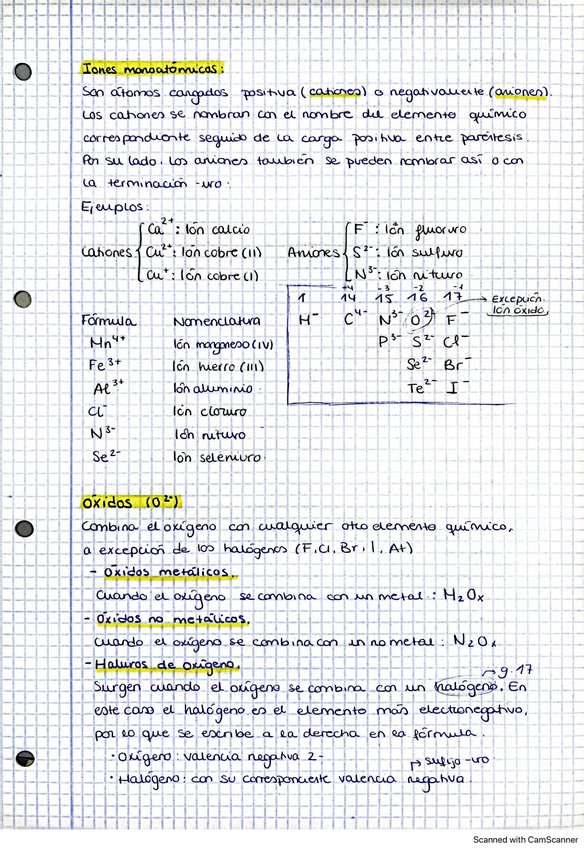 Iones monoatómicos:
Son átomos cargados positiva (cationes) o negativamente (aniones).
Los cationes se nombran con el nombre del elemento químico
correspondiente seguido de la carga positiva entre paréntesis.
Por su lado, los aniones también se pueden nombrar así o con
la terminación -uro.
Ejemplos:
Cationes { Ca²⁺: Ión calcio
Cu²⁺: Ión cobre (II)
Cu⁺: Ión cobre (I)
Aniones { F⁻: Ión fluoruro
S²⁻: Ión sulfuro
N³⁻: Ión nitruro
Fórmula Nomenclatura
Mn⁴⁺ Ión manganeso (IV)
Fe³⁺ Ión hierro (III)
Al³⁺ Ión aluminio
Cl⁻ Ión cloruro
N³⁻ Ión nitruro
Se²⁻ Ión seleniuro
-4 -3 -2 -1
1 14 15 16 17
H⁻ C⁴⁻ N³⁻ O²⁻ F⁻
P³⁻ S²⁻ Cl⁻
Se²⁻ Br⁻
Te²⁻ I⁻
→ Excepción
Ión óxido
Óxidos (O²⁻)
Combina el oxígeno con cualquier otro elemento químico,
a excepción de los halógenos (F, Cl, Br, I, At)
- Óxidos metálicos.
Cuando el oxígeno se combina con un metal: M₂Oₓ
- Óxidos no metálicos.
Cuando el oxígeno se combina con un no metal: N₂Oₓ
- Haluros de oxígeno.
→ g.17
Surgen cuando el oxígeno se combina con un halógeno. En
este caso el halógeno es el elemento más electronegativo,
por lo que se escribe a la derecha en la fórmula.
· Oxígeno: valencia negativa 2-
→ sufijo -uro
· Halógeno: con su correspondiente valencia negativa.
Scanned with CamScanner